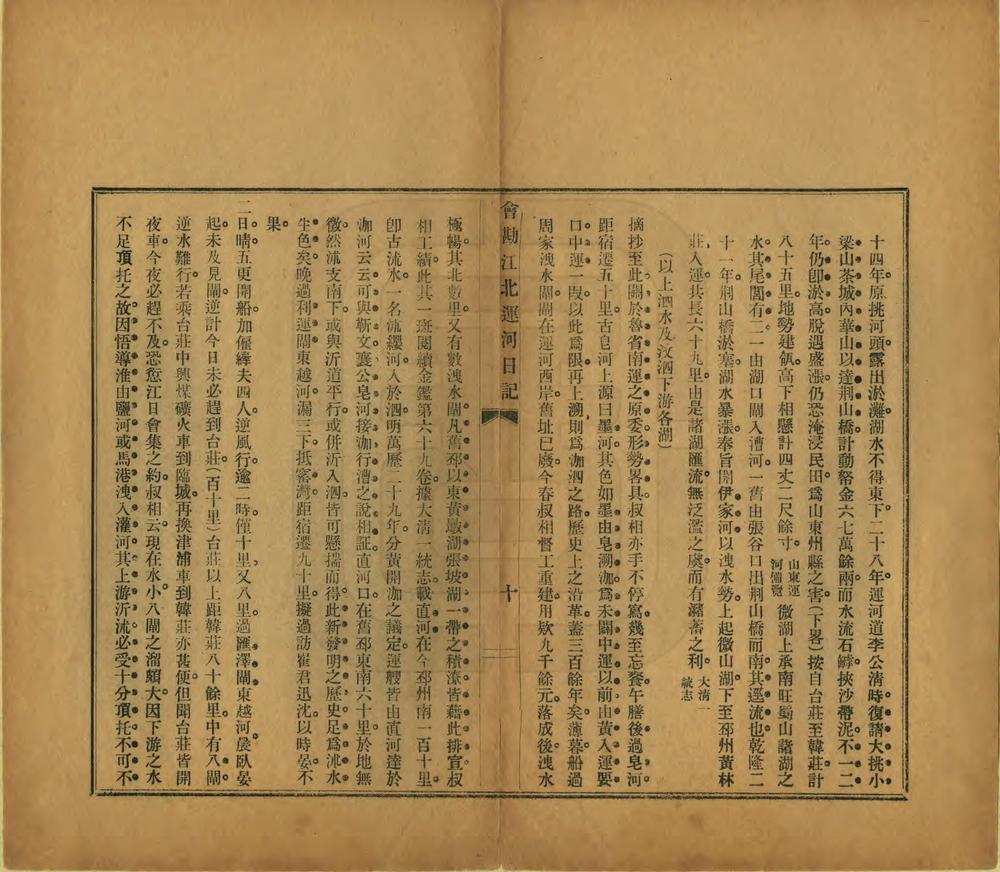 十四年原挑河頭露出淤灘湖水不得東下二十八年運河道李公清時復請大挑小
梁山茶城內華山以達荆山橋計動帑金六七萬餘兩而水流石罅挾沙帶泥不一二
年仍卽淤高脫遇盛漲仍恐淹浸民田爲山東州縣之害(下畧)按自台莊至韓莊計
八十五里地勢建瓴高下相懸計四丈二尺餘寸山東運河備覽微湖上承南旺蜀山諸湖之
水其尾閭有二一由湖口閘入漕河一舊由張谷口出荆山橋而南其逕流也乾隆二
十一年荆山橋淤塞湖水暴漲奉旨開伊家河以洩水勢上起微山湖下至邳州黃林
莊入運共長六十九里由是諸湖匯流無泛濫之虞而有瀦蓄之利大清一統志
(以上泗水及汶泗下游各湖)
摘抄至此關於魯省南運之原委形勢畧具叔相亦手不停寫幾至忘餐午膳後過皂河
距宿遷五十里古皂河上源曰墨河其色如墨由皂溯泇爲未闢中運以前由黃入運要
口中運一段以此爲限再上溯則爲泇泗之路歷史上之沿革蓋三百餘年矣薄暮船過
周家洩水閘閘在運河西岸舊址已廢今春叔相督工重建用欵九千餘元落成後洩水
會勘江北運河日記
十
極暢其北數里又有數洩水閘凡舊邳以東黃墩湖張坡湖一帶之積潦皆藉此排宣叔
相工績此其一斑閱續金鑑第六十九卷據大清一統志載直河在今邳州南一百十里
卽古沭水一名沭纓河入於泗明萬歷二十九年分黃開泇之議定運艘皆由直河達於
泇河云云可與靳文襄公皂河接泇行漕之說相証直河口在舊邳東南六十里於地無
徵然沭支南下或與沂道平行或併沂入泗皆可懸揣而得此新發明之歷史足爲沭水
生色矣晚過利運閘東越河漏三下抵窰灣距宿遷九十里擬過訪崔君迅沈以時晏不
果
二日晴五更開船加僱縴夫四人逆風行逾二時僅十里又八里過匯澤閘東越河晨臥晏
起未及見閘逆計今日未必趕到台莊(百十里)台莊以上距韓莊八十餘里中有八閘
逆水難行若乘台莊中興煤礦火車到臨城再換津浦車到韓莊亦甚便但聞台莊皆開
夜車今夜必趕不及恐愆江日會集之約叔相云現在水小八閘之溜頗大因下游之水
不足頂托之故因悟導淮由鹽河或馬港洩入灌河其上游沂沭必受十分頂托不可不